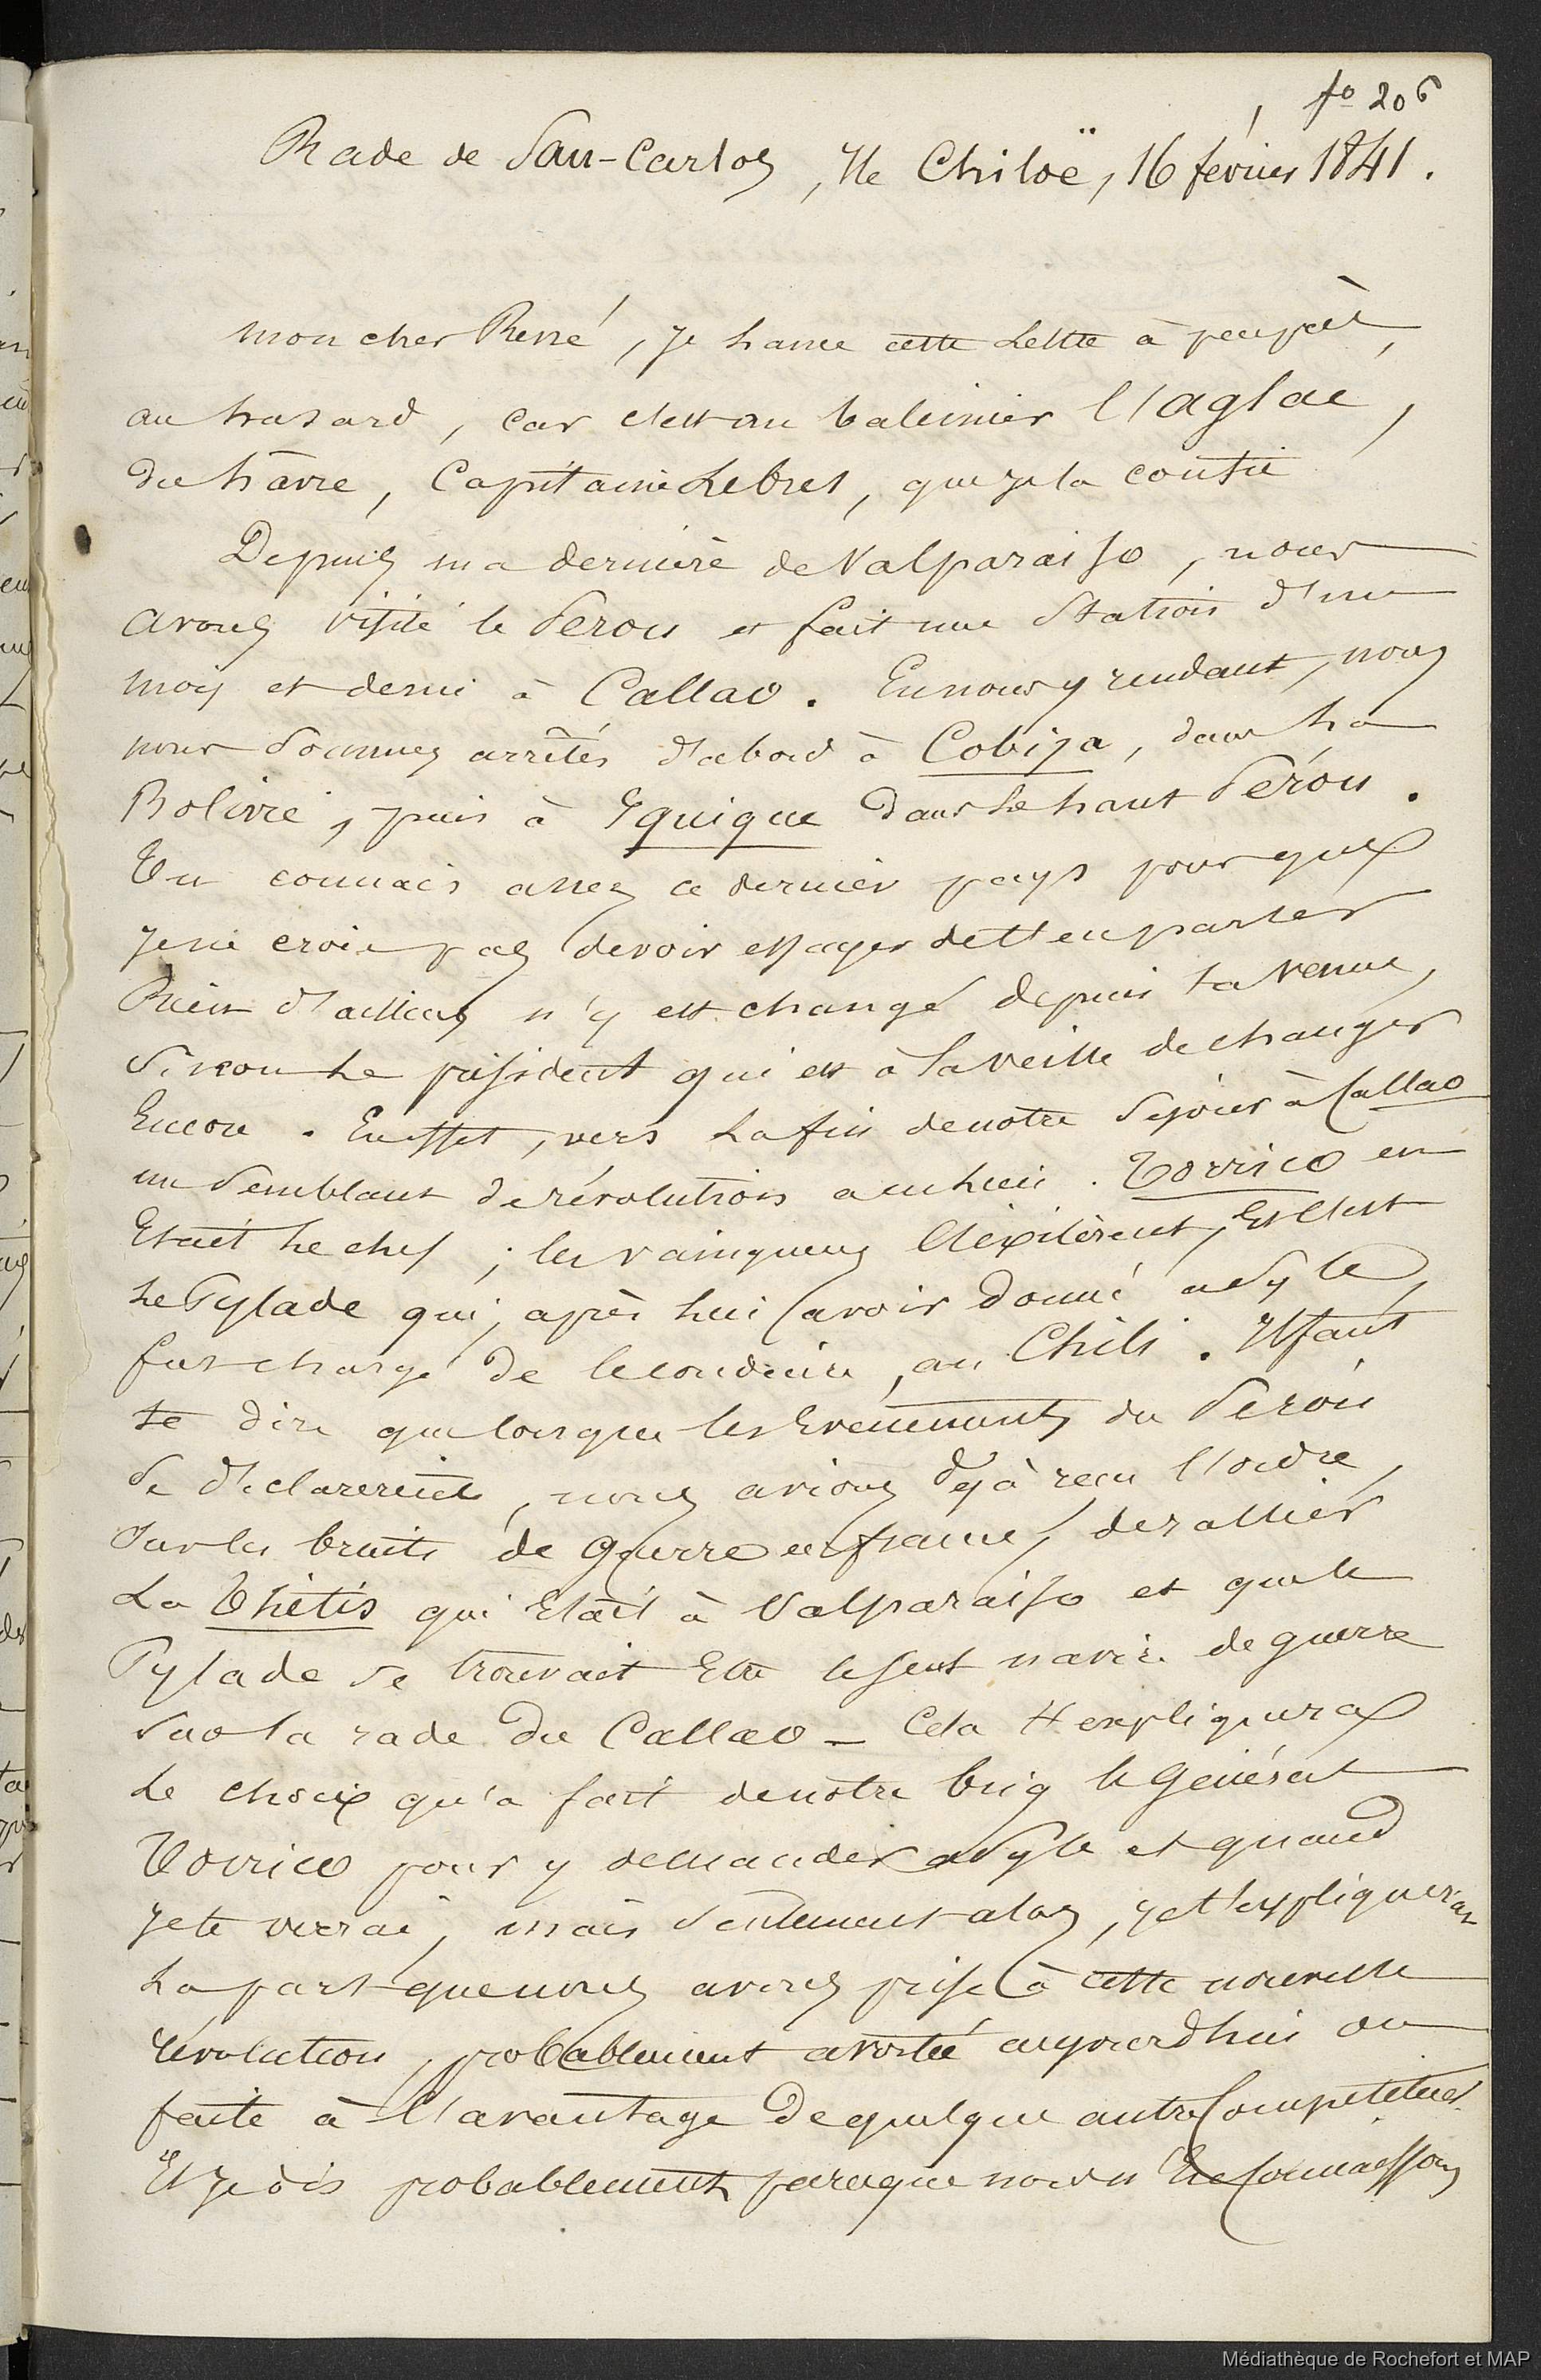 fo 206
Rade de San-Carlos, Ile Chiloë, 16 février 1841.
Mon cher René, je lance cette lettre à peu près,
au hasard, car c'est au baleinier l'aglaé,
du hâvre, Capitaine Lebret, que je la confie
Depuis ma dernière de Valparaiso, nous
avons visité le Pérou et fait une station d'un
mois et demi à Callao. En nous y rendant, nous
nous sommes arrêtés d'abord à Cobija, dans la
Bolivie, puis à Yquique dans le haut Pérou.
Tu connais assez ce dernier pays pour que
je ne croie pas devoir essayer de t'en parler
Rien d'ailleurs n'y est changé depuis ta venue,
sinon le président qui est à la veille de changer
Encore. En effet, vers la fin de notre séjour à Callao
un semblant de révolution a eu lieu. Torrico en
Etait le chef ; les vainqueurs l'éxilèrent, Et c'est
le Pylade qui, après lui avoir donné asyle,
fut chargé de le conduire, au Chili. Il faut
te dire que lorsque les Evènements du Pérou
se déclarerent, nous avions déjà reçu l'ordre,
sur les bruits de guerre en france, de rallier
La Thétis qui Etait à Valparaiso et que le
Pylade se trouvait Etre le seul navire de guerre
sur la rade du Callao - Cela t'expliquera
le choix qu'a fait de notre brig le Général
Torrico pour y demander asyle et quand
je te verrai, mais seulement alors, je t'expliquerai
la part que nous avons prise à cette nouvelle
révolution, probablement avortée aujourd'hui ou
faite à l'avantage de quelque autre Compétiteur.
Et je dis probablement parceque nous ne connaissons
Médiathèque de Rochefort et MAP